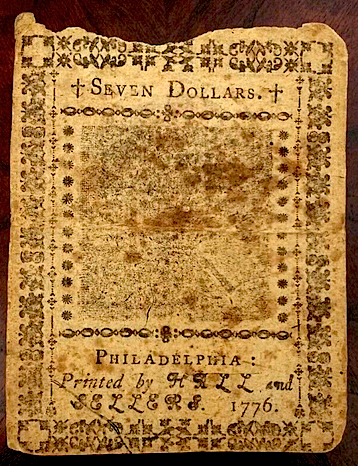 †SEVEN DOLLARS.†
PHILADELPHIA:
Printed by HALL and
SELLERS. 1776.